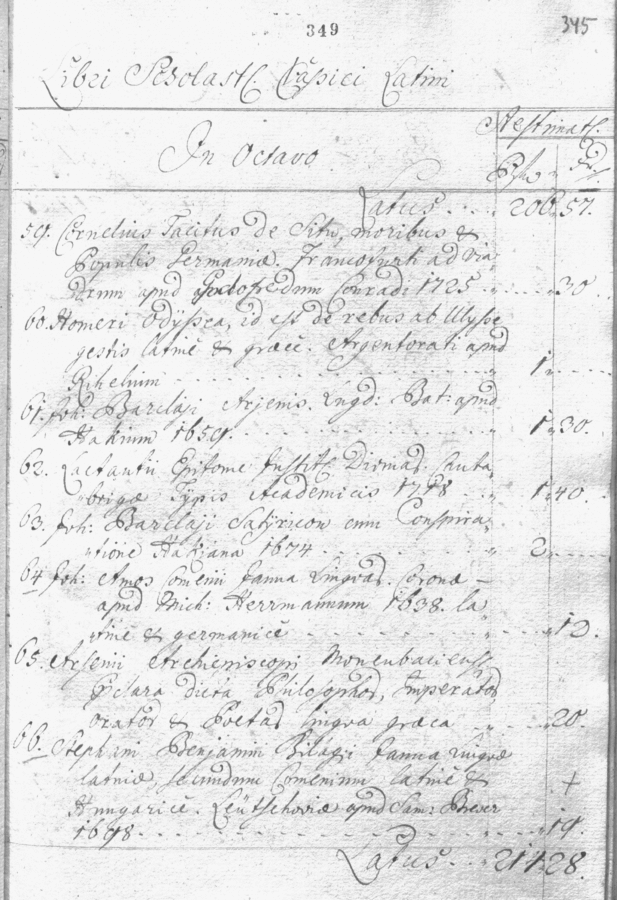 349
345
Libri Scholast. Classici Latini
Aestimat.
In Octavo
Rfl. Xr.
Latus . . . 206. 57.
59. Cornelius Tacitus de Situ, moribus &
Populis Germaniæ. Francofurti ad Via
drum apud Godofredum Conradi 1725 . . . 30
60. Homeri Odyssea, id est de rebus ab Ulysse
gestis latinè & græcè. Argentorati apud
Rihelium . . . 1. . . .
61. Joh: Barclaji Arjenis. Lugd: Bat: apud
Hakium 1659. . . . 1. 30.
62. Lactantii Epitome Instit. Divinar. Canta
brigæ Typis Academicis 1718 . . . 1. 40.
63. Joh: Barclaji Satyricon cum Conspira
tione 1674 . . . 2. . . .
64. Joh: Amos Comenii Janua Linguar. Coronæ
apud Mich: Herrmannum 1638. la
tinè & germanicè . . . 12.
65. Arsenii Archiepiscopi
Præclara dicta Philosophor, Imperator
orator & Poetar lingva græca . . . 20.
66. Stephani Benjamin Bilagii Janua lingvæ
latinæ, secundum Comenium latinè & +
Hungaricè. Leütschoviæ apud Sam: Brever
1698 . . . 19.
Latus . . . 214. 28.